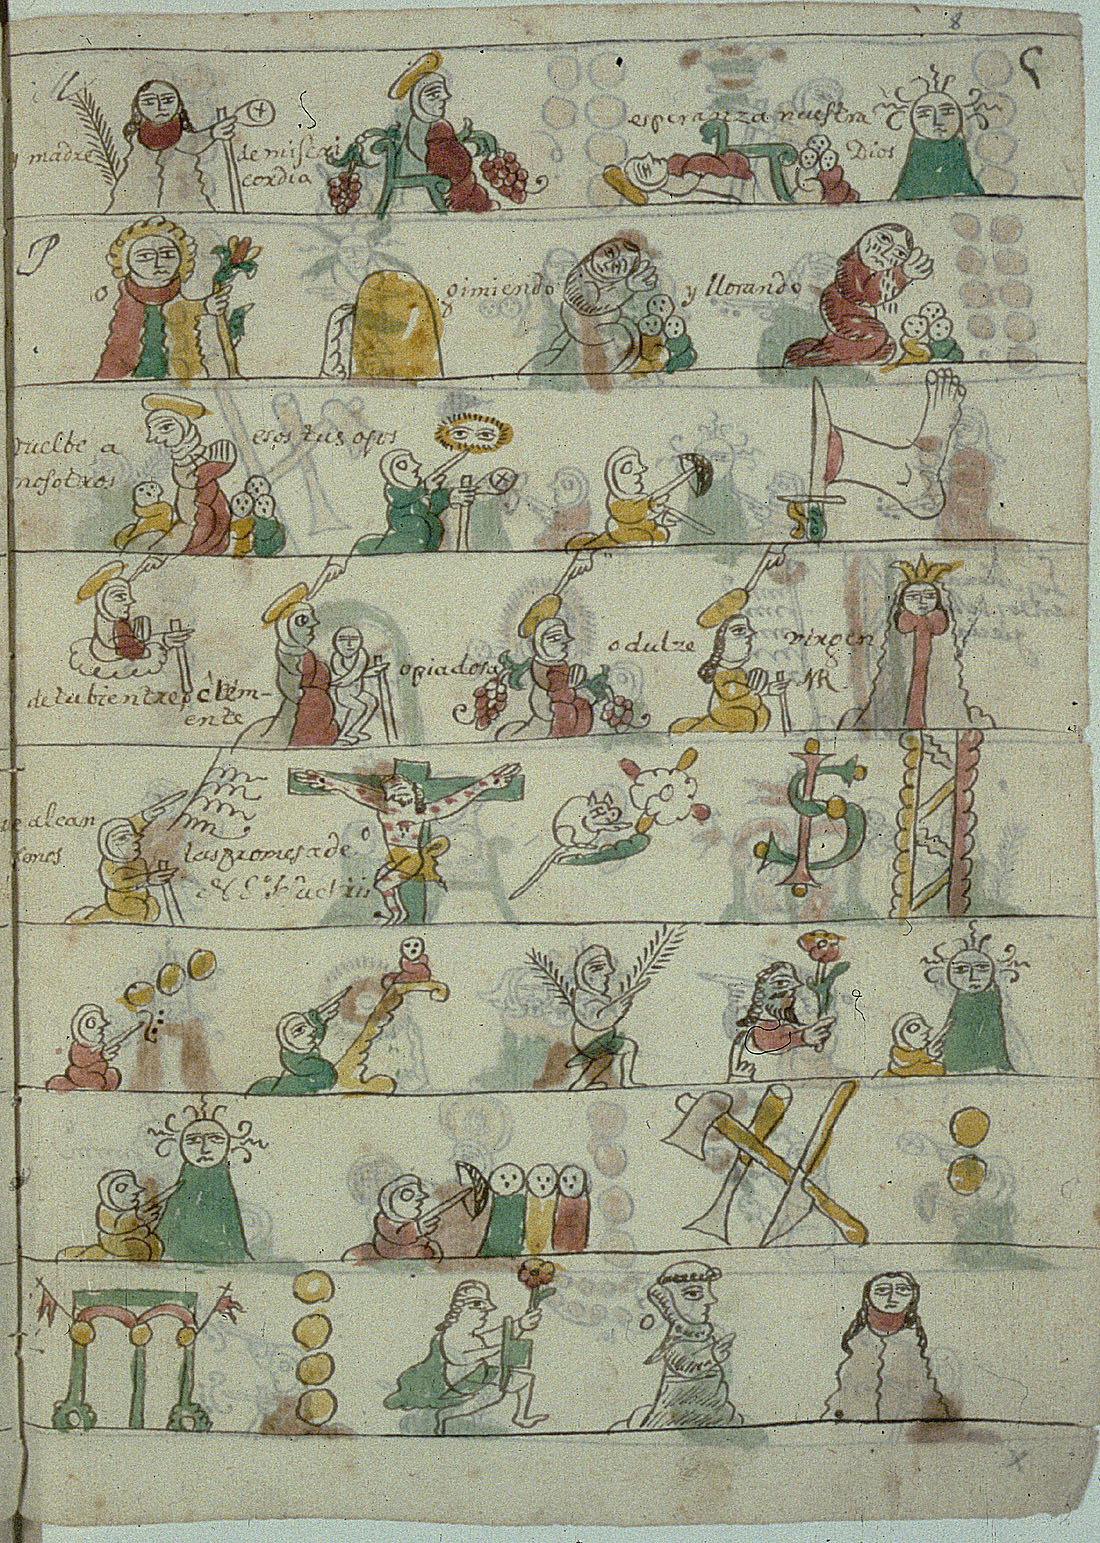 8
y madre
de miseri
cordia
esperanza nuestra
Dios
P
o
gimiendo
y llorando
buelbe a
nosotros
esos tus ojos
de tu bientre
o clem-
ente
o piadosa
o dulze
virgen
MR
alcan
semos
las promesa de